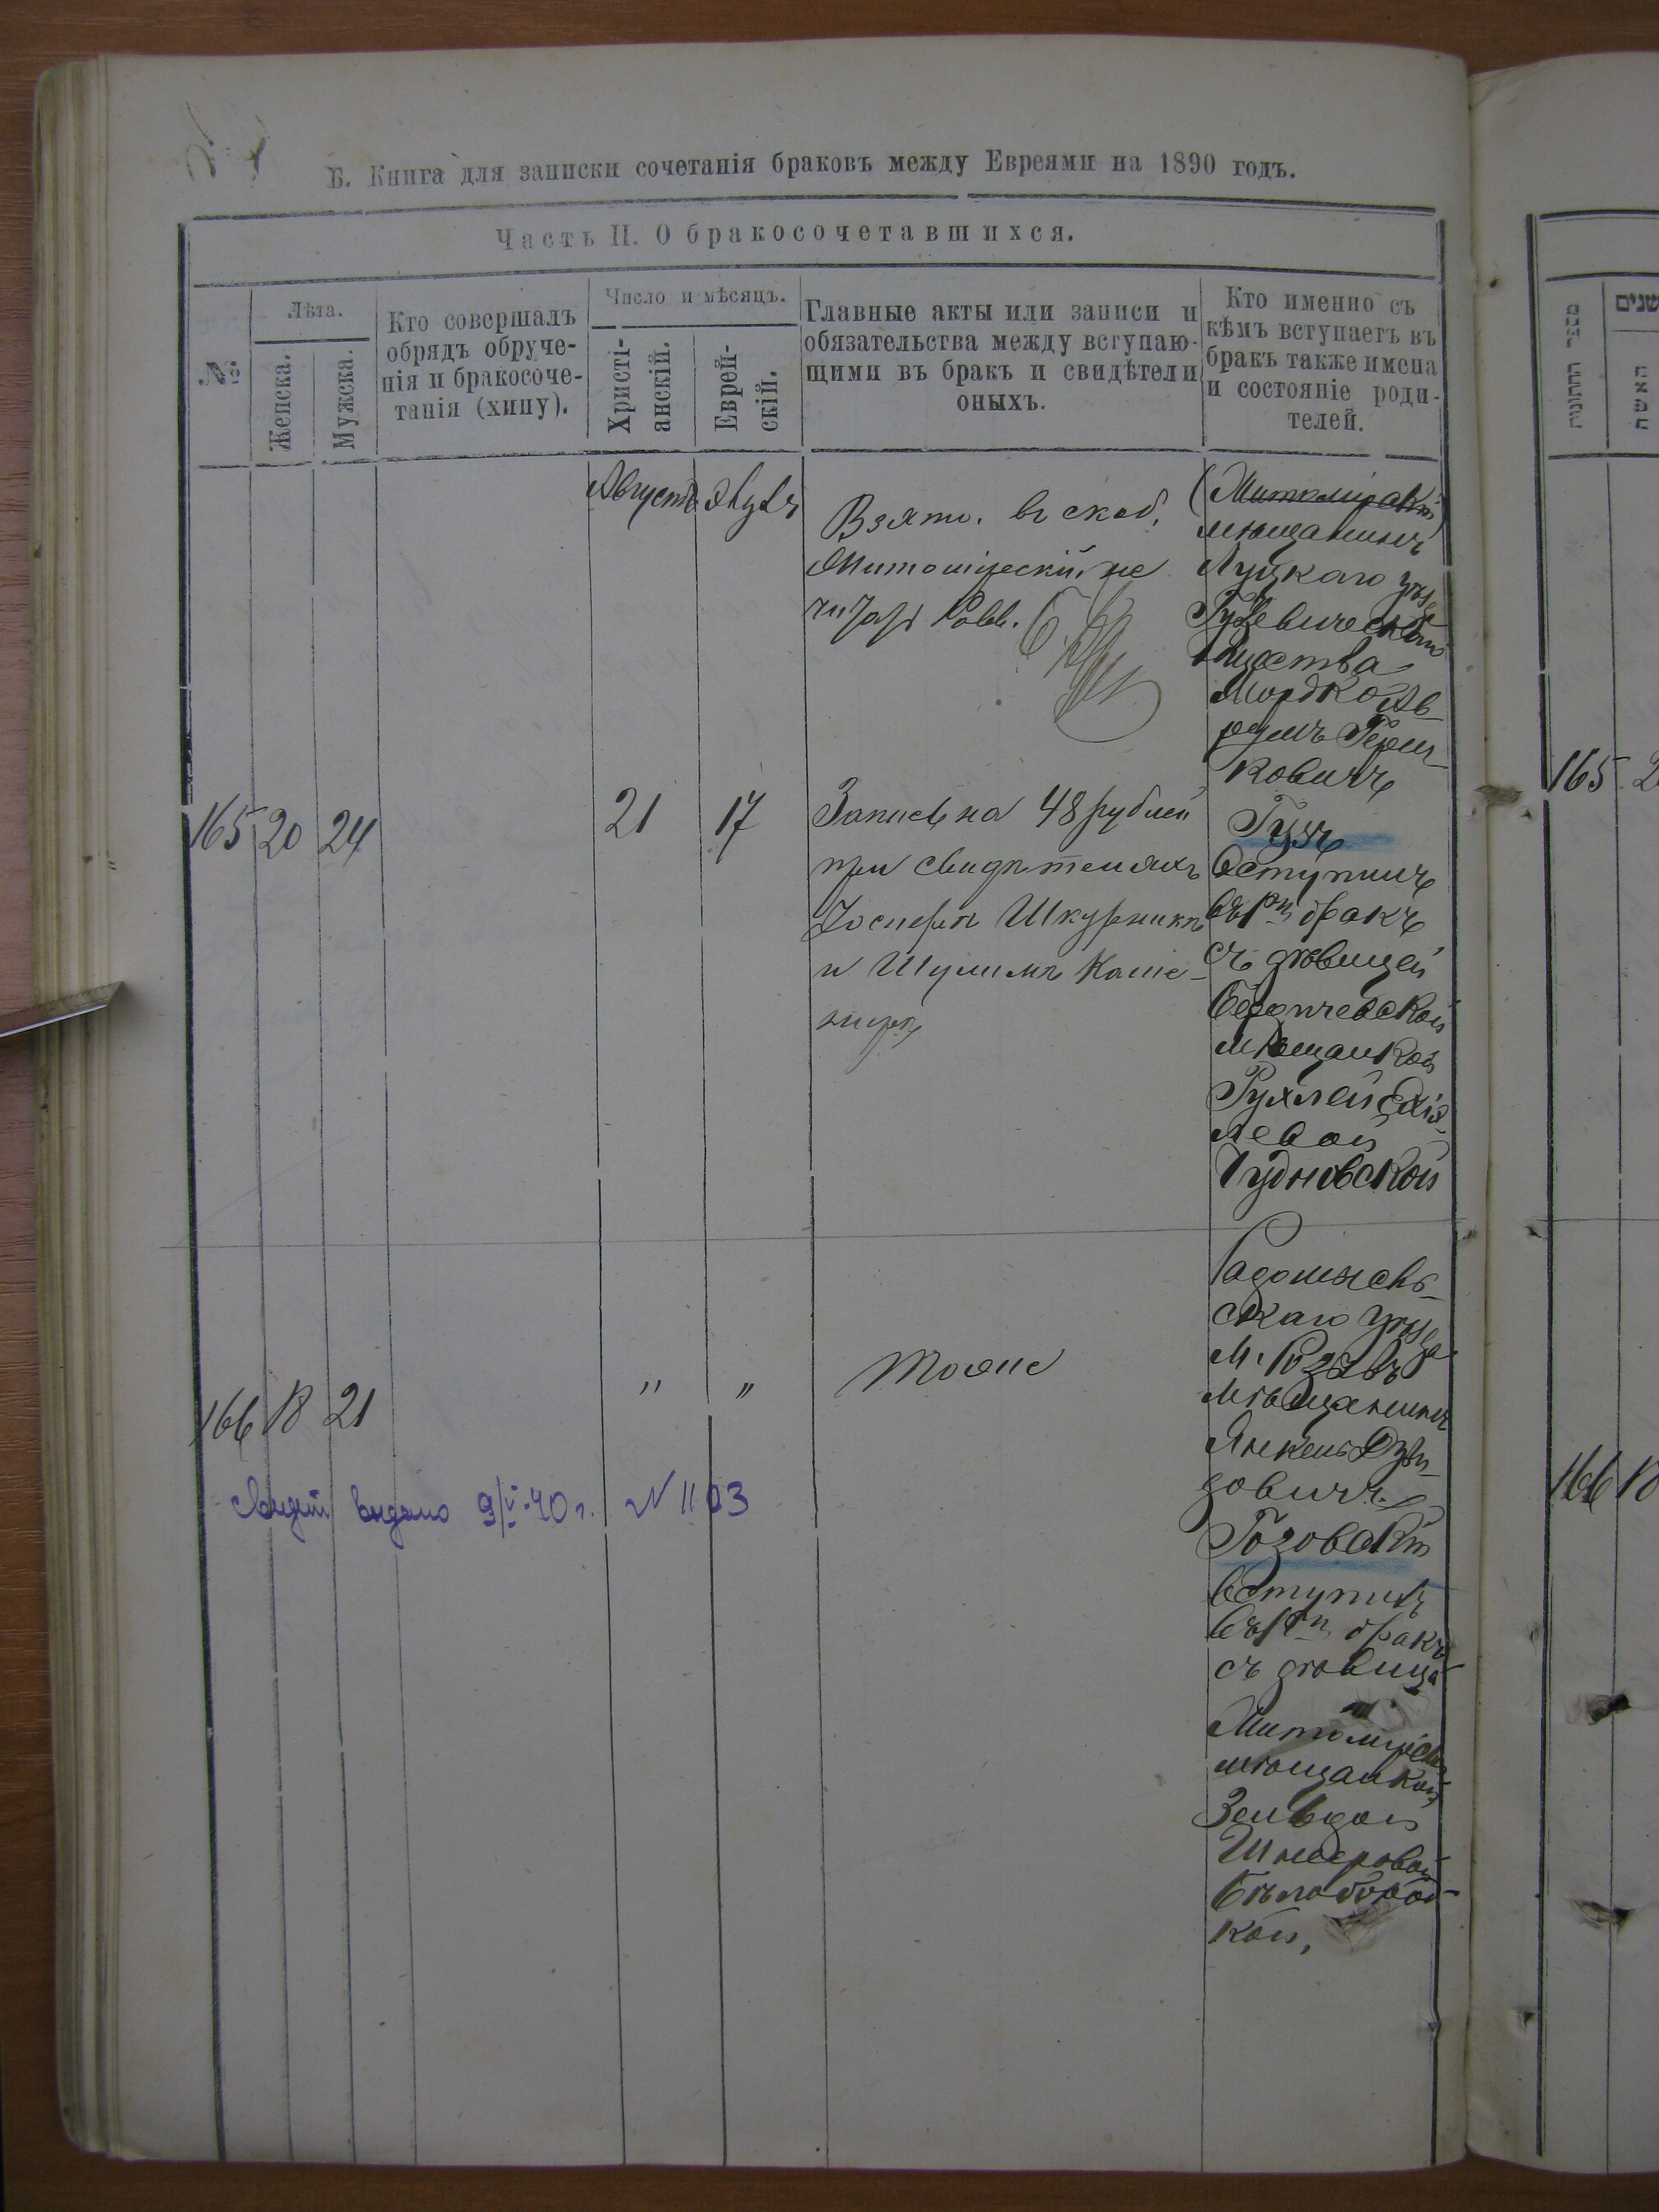 Б. Книга для записки сочетанія браковъ между Евреями на 1890 годъ.
Часть II. О бракосочетавшихся.
№
Лѣта.
Женска.
Мужска.
Кто совершалъ
обрядъ обруче-
нія и бракосоче-
танія (хипу).
Число и мѣсяцъ.
Христі-
анскій.
Еврей-
скій.
Главные акты или записи и
обязательства между вступаю-
щими въ бракъ и свидѣтели
оныхъ.
Кто именно съ
кѣмъ вступаетъ въ
бракъ также имена
и состояніе роди-
телей.
Августъ
Взято. въ скоб.
Житомірскій не
Житомірскій
мѣщанинъ
Луцкаго уѣзд
общества
Мордко Ав-
румъ Герш-
ковичъ
165 20 24
21 17
Запись на 48 рублей
при свидѣтеляхъ
Іосифѣ Шкурникѣ
и Шулимѣ Каше-
Гузъ
Вступилъ
въ 1й бракъ
съ дѣвицей
Бердичевской
мѣщанкой
Рухлей
левой
Чудновской
166 18 21
" "
Тоже
Радомысль-
скаго уѣзда
м.
мѣщанинъ
Янкель Дуви-
довичъ
вступилъ
въ 1й бракъ
съ дѣвицей
Житомірск
мѣщанкой
Зельдой
Шнееровой
Бѣлобород-
кой,
Свидет выдано 9/V-40 г. N 1103
מספר החתונות
שנים
האשה
165 2
166 18